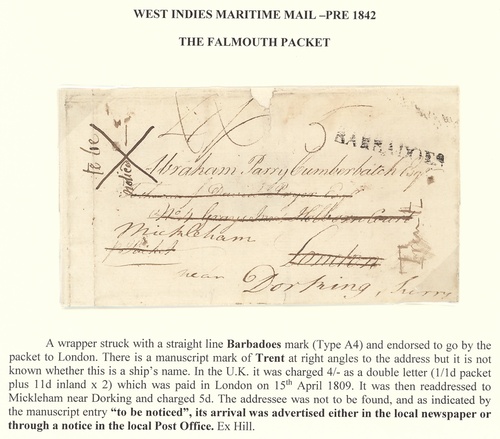 WEST INDIES MARITIME MAIL –PRE 1842
THE FALMOUTH PACKET
to be
noticed
4/
5
BARBADOES
Abraham Parry Cumberbatch Esqr
Holborn Court
Mickleham
London
near
Dorking, Surry
Trent
A wrapper struck with a straight line Barbadoes mark (Type A4) and endorsed to go by the
packet to London. There is a manuscript mark of Trent at right angles to the address but it is not
known whether this is a ship's name. In the U.K. it was charged 4/- as a double letter (1/1d packet
plus 11d inland x 2) which was paid in London on 15th April 1809. It was then readdressed to
Mickleham near Dorking and charged 5d. The addressee was not to be found, and as indicated by
the manuscript entry "to be noticed", its arrival was advertised either in the local newspaper or
through a notice in the local Post Office. Ex Hill.